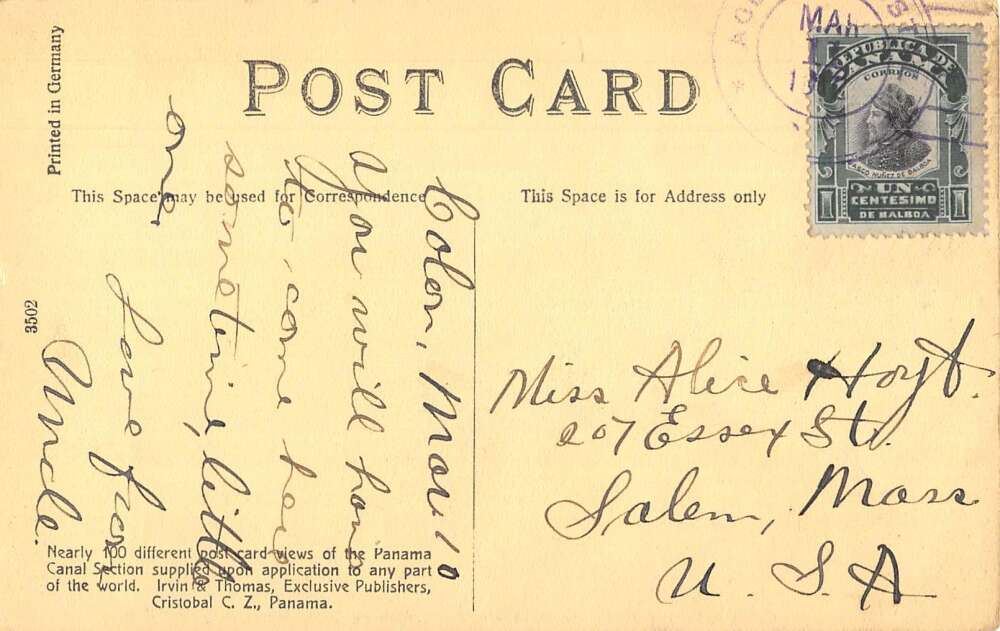 Printed in Germany
POST CARD
This Space may be used for Correspondence
This Space is for Address only
MAR
REPUBLICA DE
PANAMA
CORREOS
VASCO NUÑEZ DE BALBOA
1 UN 1
CENTESIMO
DE BALBOA
Colon, Mar 10
You will have
to come here
sometime, little
one.
Love from
Uncle.
Miss Alice Hoyt.
207 Essex St.
Salem, Mass
U. S. A
3502
Nearly 100 different post card views of the Panama
Canal Section supplied upon application to any part
of the world. Irvin & Thomas, Exclusive Publishers,
Cristobal C. Z., Panama.